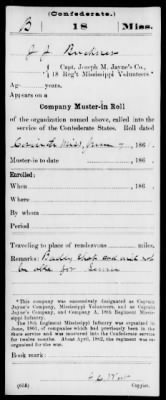 (Confederate.)
B 18 Miss.
J. J.
Capt. Joseph M. Jayne's Co.,
18 Reg't Mississippi Volunteers.*
Age years.
Appears on a
Company Muster-in Roll
of the organization named above, called into the
service of the Confederate States. Roll dated
Corinth Miss, June 7, 186 .
Muster-in to date 186 .
Enrolled:
When 186 .
Where
By whom
Period
Traveling to place of rendezvous miles.
Remarks: Badly and will not
be able for
*This company was successively designated as Captain
Jayne's Company, Mississippi Volunteers, and as Captain
Jayne's Company, and Company A, 18th Regiment Mississippi
The 18th Regiment Mississippi Infantry was organized in
June, 1861, of companies which had previously been in the
state service and was mustered into the Confederate service
for twelve months. About April, 1862, the regiment was re-
organized for the war.
Book mark:
(635) Copyist.